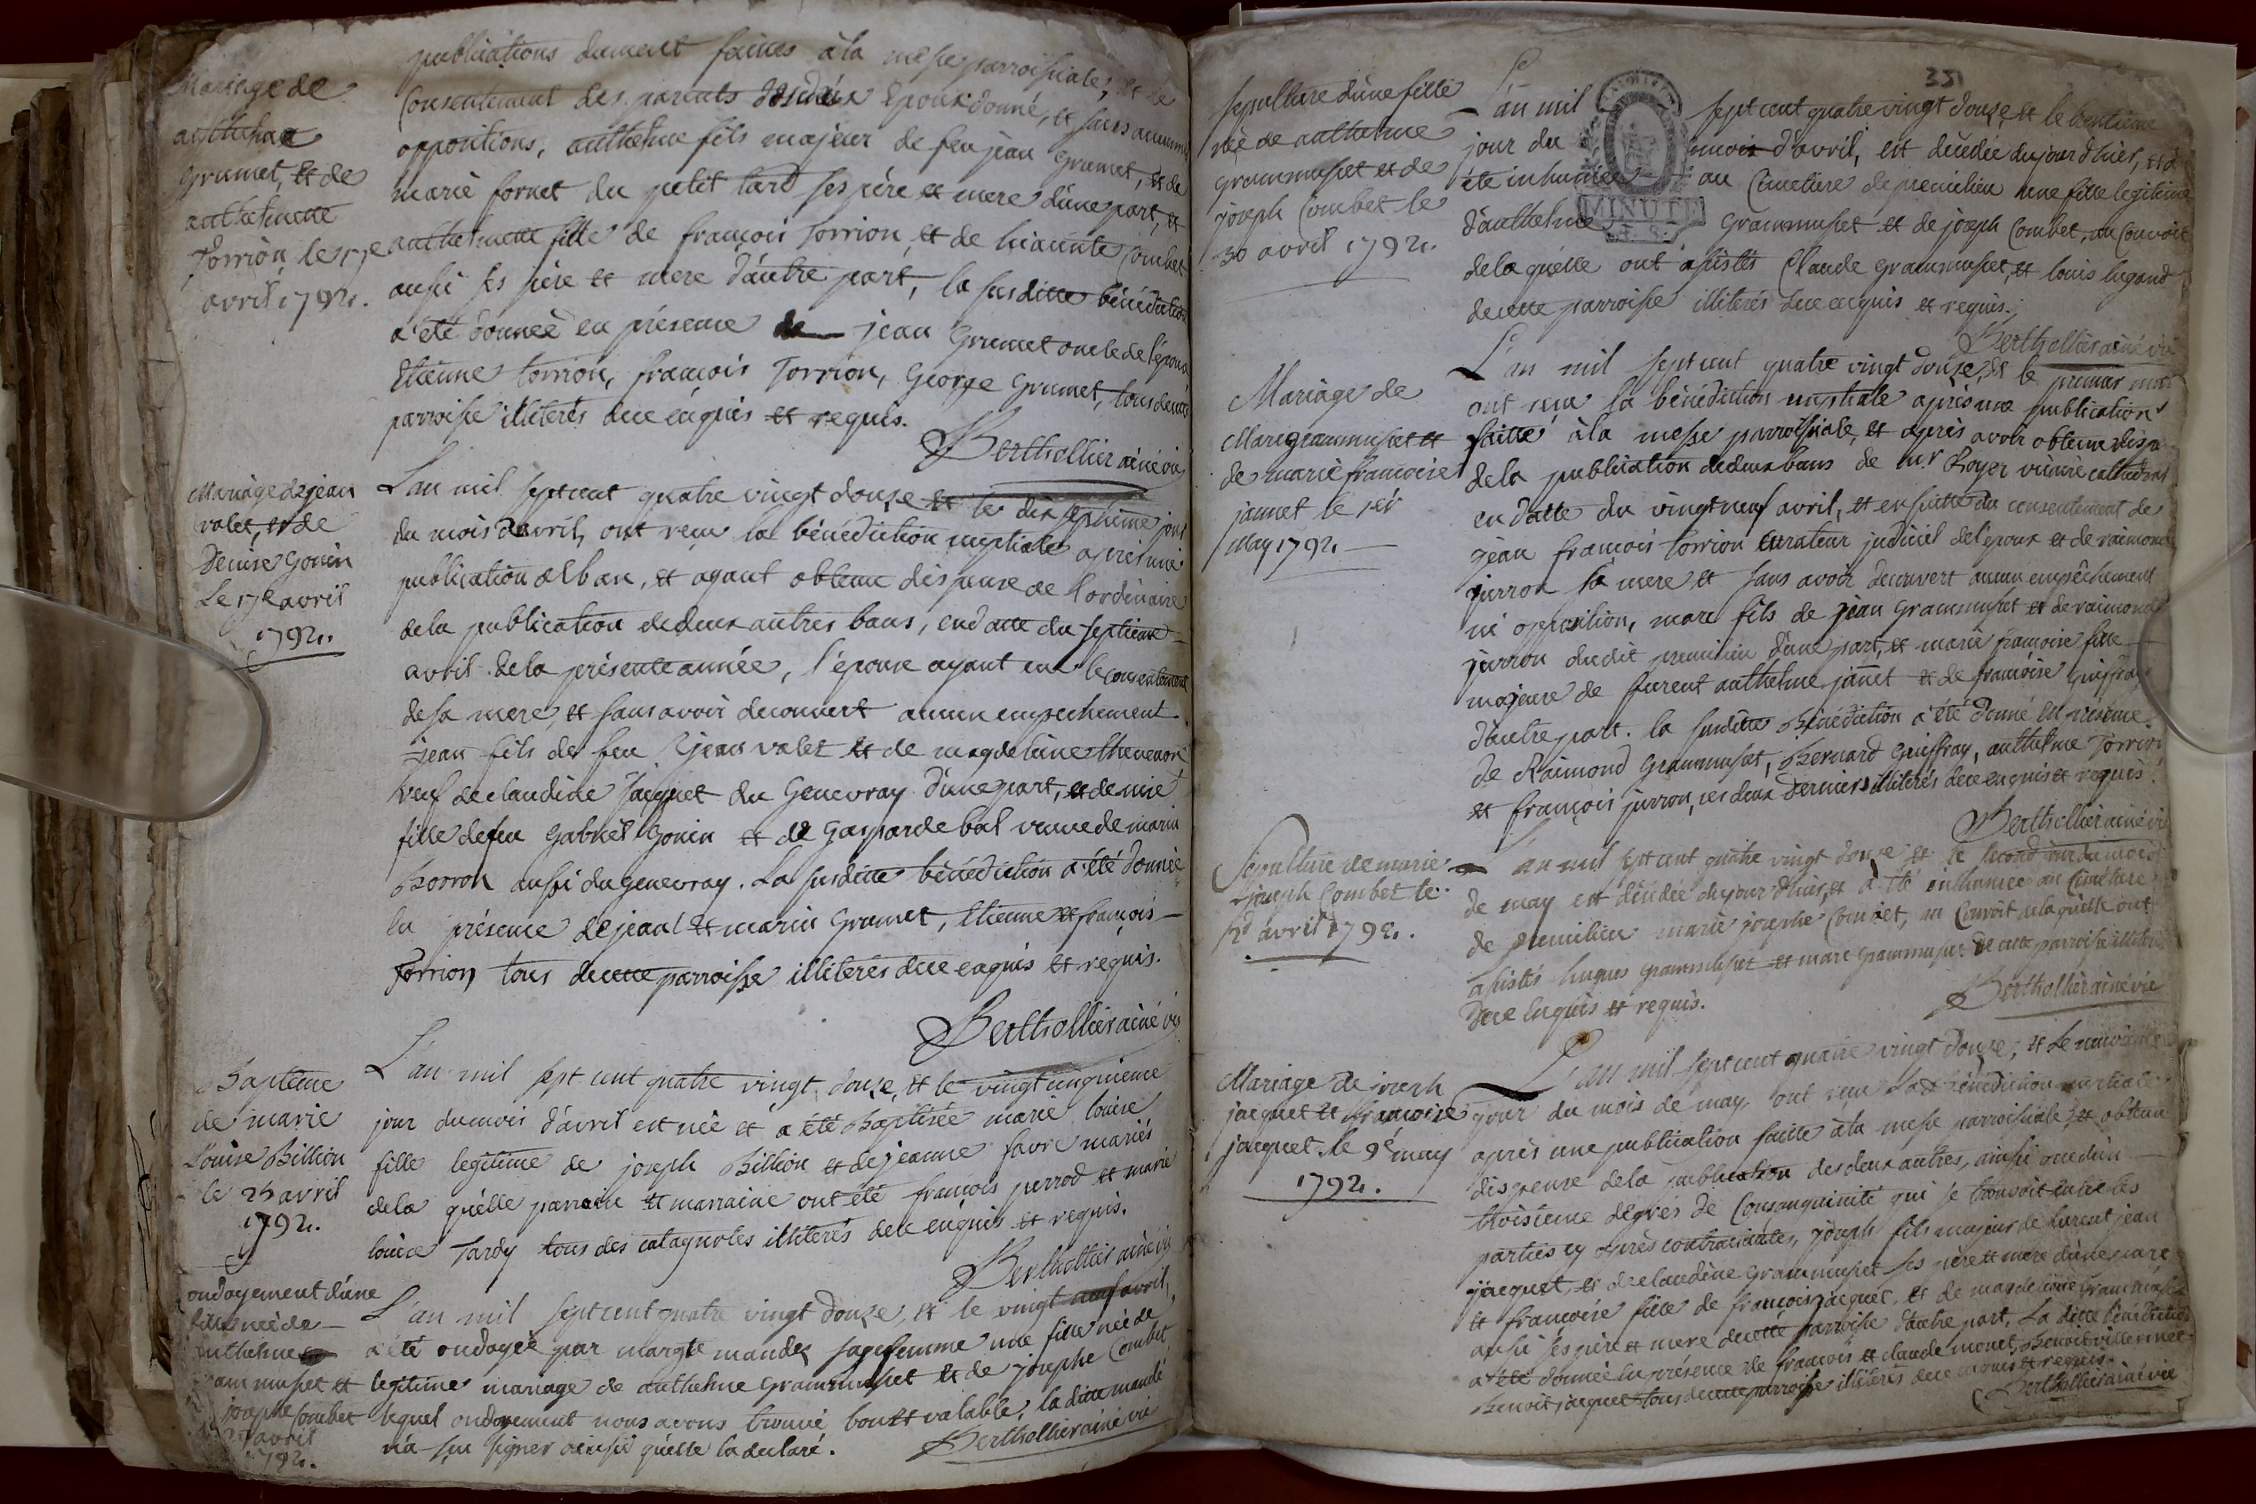 Mariage de
anthelme
Grumet, et de
anthelmette
Torrion, le 17e
avril 1792.
publications dument faites à la messe parroissiale, et le
Consentement des parents des deux Epoux donné, et sans aucunne
oppositions, anthelme fils majeur de feu jean Grumet, et de
marie fornet du petit tard ses pére et mere d'une part, et
anthelmette fille de françois Torrion, et de hiacinte Combet
aussi ses pére et mere d'autre part, la susditte bénédiction
a été donnée en présence de jean Grumet oncle de l'époux
Etienne torrion, françois Torrion, George Grumet, tous de cette
parroisse illiterés de ce enquis et requis.
Berthollier ainé vic
Mariage de jean
valet, et de
Denise Gonin
Le 17e avril
1792.
L'an mil sept cent quatre vingt douze et le dix septieme jour
du mois d'avril, ont reçu la bénédiction nuptiale après une
publication de ban, et ayant obtenu dispense de l'ordinaire
de la publication de deux autres bans, en datte du septieme
avril de la présente année, l'épouse ayant eu le consentement
de sa mere, et sans avoir decouvert aucun empechement
jean fils de feu jean valet et de magdeleine thevenon
veuf de claudine jacquet du Genevray d'une part, et denise
fille de feu Gabriel Gonin et de Gasparde bal veuve de marin
Borron aussi du Genevray. La susditte bénédiction a été donnée
en présence de jean et marin Grumet, Etienne et françois
Torrion tous de cette parroisse illiterés de ce enquis et requis.
Berthollier ainé vic
Baptême
de marie
Louise Billion
le 25 avril
1792.
L'an mil sept cent quatre vingt douze, et le vingt cinquieme
jour du mois d'avril est née et a été Baptisée marie louise
fille legitime de joseph Billion et de jeanne favre mariés
de la quelle parrain et marraine ont été françois perrod et marie
louise Tardy tous des catagnoles illiterés de ce enquis et requis.
Berthollier ainé vic
ondoyement d'une
fille née de
anthelme
Grammuset et
josephe Combet
avril
1792.
L'an mil sept cent quatre vingt douze, et le vingt neuf avril,
a été ondoyée par margte mandes sagefemme une fille née de
legitime mariage de anthelme Grammuset et de josephe Combet
lequel ondoyement nous avons trouvé bon et valable, la ditte mandé
n'a su signer ainsi qu'elle l'a declaré.
Berthollier ainé vic
351
sepulture d'une fille
née de anthelme
grammuset et de
joseph Combet le
30 avril 1792.
L'an mil sept cent quatre vingt douze, et le trentieme
jour du mois d'avril, est décedée du jour d'hier, et a
été inhumée au Cimetiere de premilieu une fille legitime
d'anthelme Grammuset et de joseph Combet, au Convoit
MINUTE
de la quelle ont assistés Claude Grammuset, et louis lugand
de cette parroisse illiterés de ce enquis et requis.
Berthollier ainé vic
Mariage de
Marc grammuset et
de marie françoise
jannet le 1er
May 1792.
L'an mil sept cent quatre vingt douze, et le premier mai
ont reçu la bénédiction nuptiale après une publication
faitte à la messe parroissiale, et après avoir obtenu dispense
de la publication de deux bans de mr Royer vicaire cathedral
en datte du vingt neuf avril, et ensuitte du consentement de
jean françois torrion curateur judiciel de l'époux et de raimonde
jurron sa mere et sans avoir decouvert aucun empêchement
ni opposition, marc fils de jean Grammuset et de raimonde
jurron dudit premilieu d'une part, et marie françoise fille
majeure de furent anthelme jannet et de françoise Guiffray
d'autre part. la susditte Bénédiction a été donné en présence
de Raimond Grammuset, Bernard Guiffray, anthelme Torrion
et françois jurron, ces deux derniers illiterés de ce enquis et requis.
Berthollier ainé vic
Sepulture de marie
joseph Combet le
2d avril 1792.
L'an mil sept cent quatre vingt douze et le second jour du mois
de may est décedée du jour d'hier, et a été inhumée au Cimetiere
de premilieu marie josephe Combet, au Convoit de laquelle ont
assistés hugues Grammuset et marc Grammuset de cette parroisse illiterés
de ce enquis et requis.
Berthollier ainé vic
Mariage de joseph
jacquet et françoise
jacquet, le 9e may
1792.
L'an mil sept cent quatre vingt douze, et le neuvieme
jour du mois de may, ont reçu la bénédiction nuptiale
après une publication faitte à la messe parroissiale, et obtenu
dispense de la publication des deux autres, ainsi que d'un
troisieme dégrés de Consanguinité qui se trouvoit entre les
parties cy après contractantes, joseph fils majeur de furent jean
jacquet, et de claudine Grammuset ses père et mere d'une part
et françoise fille de françois jacquet, et de magdeleine Grammuset
aussi ses pere et mere de cette parroisse d'autre part, La ditte bénédiction
a été donnée en présence de françois et claude monet, Benoit villermet
Benoit jacquet tous de cette parroisse illiterés de ce enquis et requis.
Berthollier ainé vic